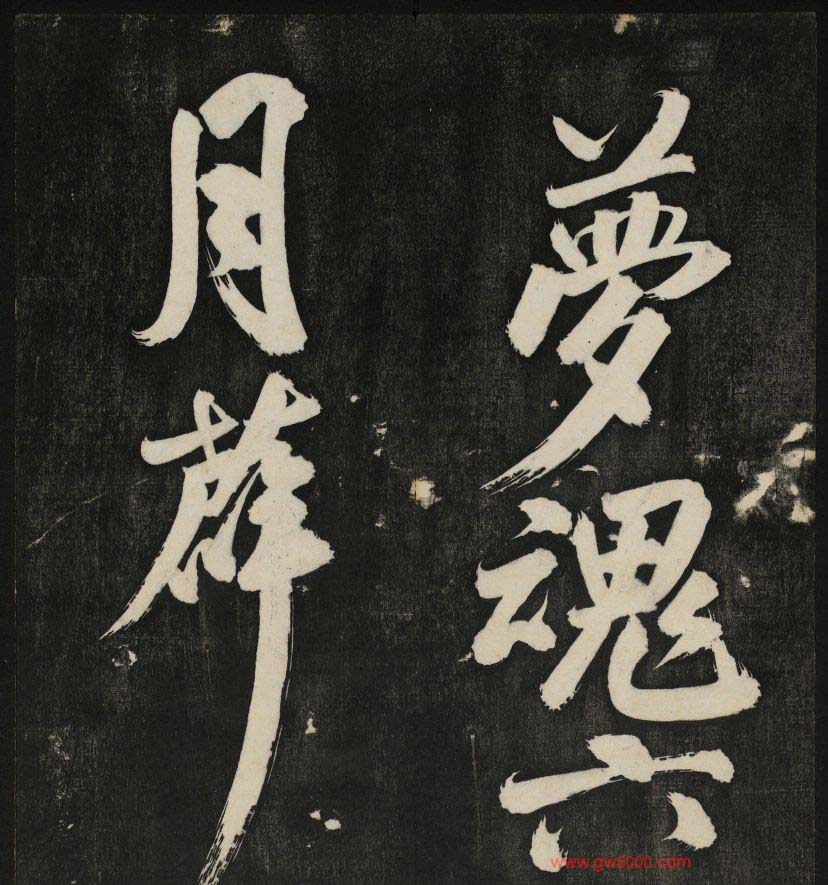 夢魂六
月薜
www.gw5000.com